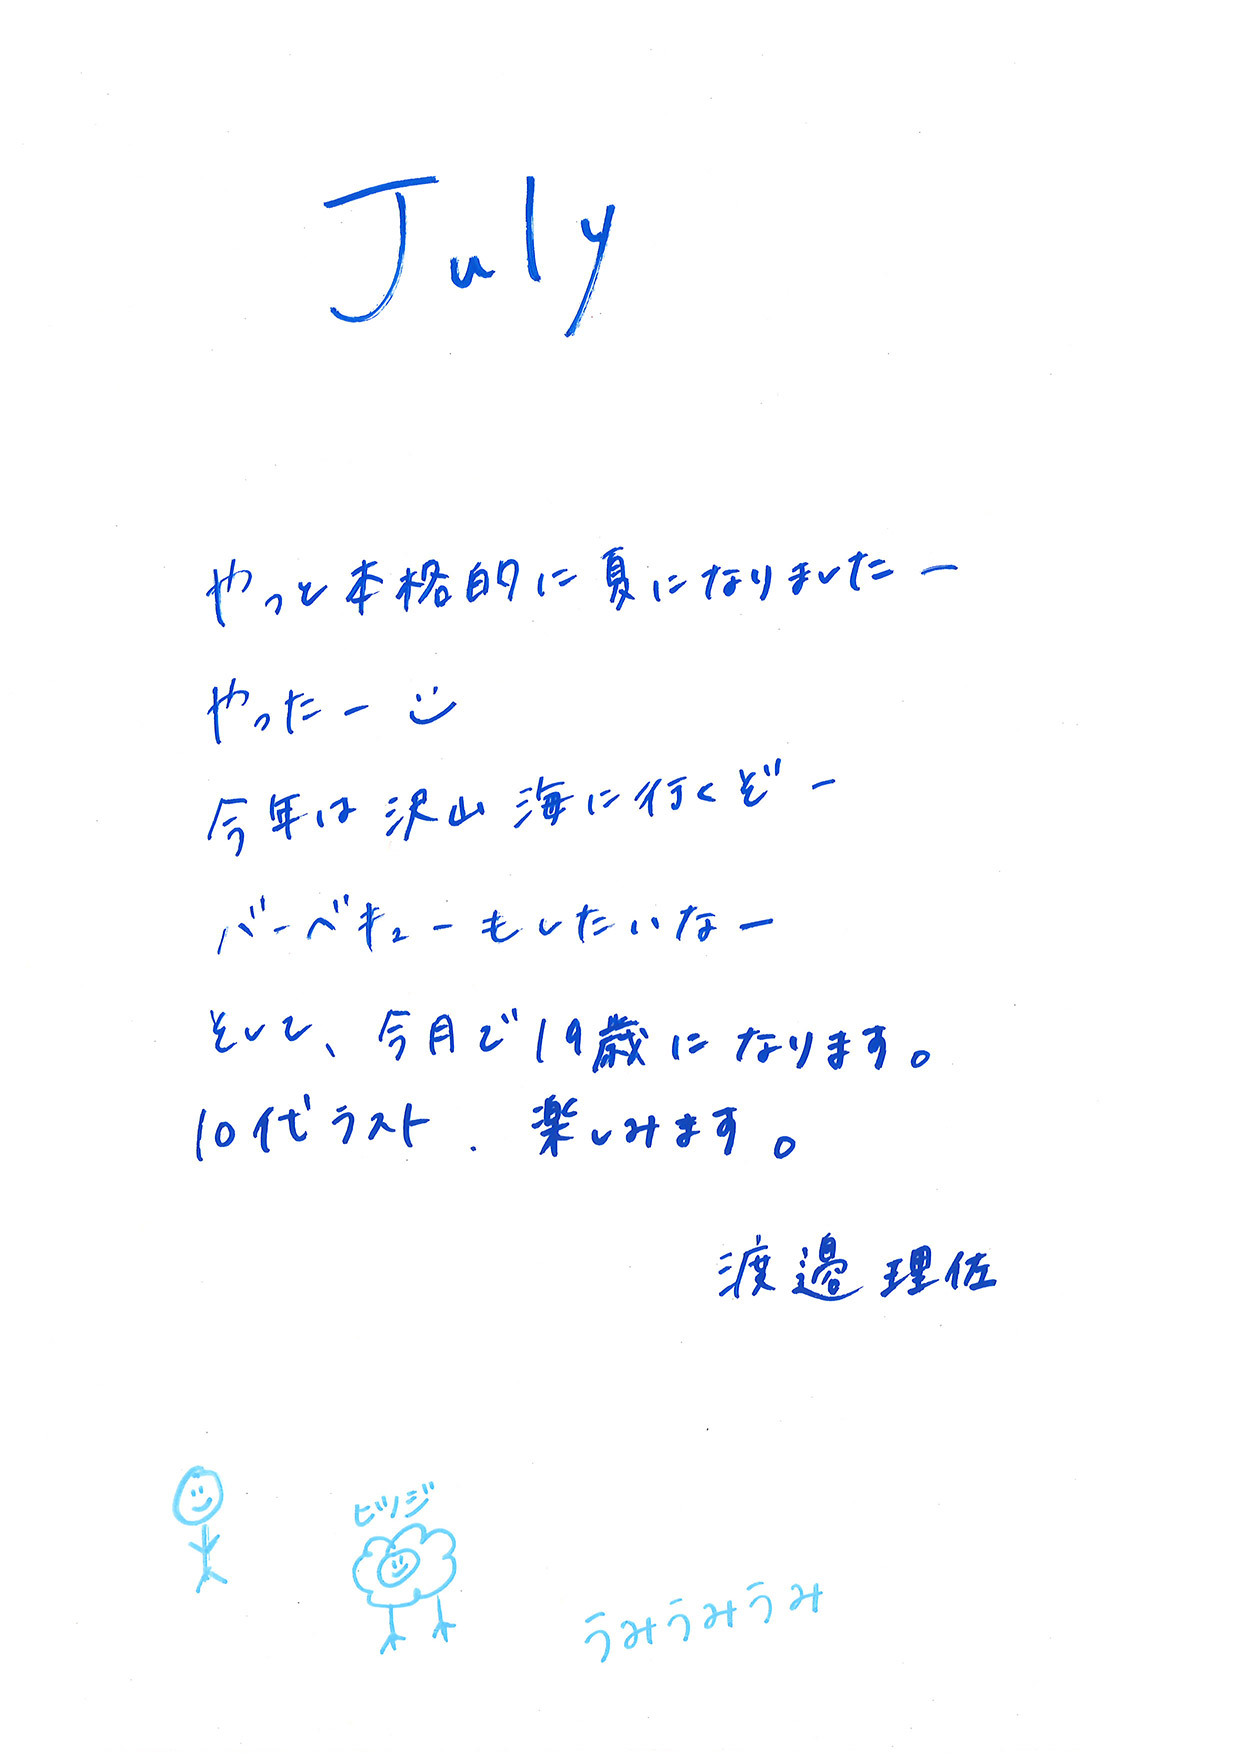 July
やっと本格的に夏になりましたー
やったー
今年は沢山海に行くぞー
バーベキューもしたいなー
そして、今月で19歳になります。
10代ラスト、楽しみます。
渡邉理佐
ヒツジ
うみうみうみ